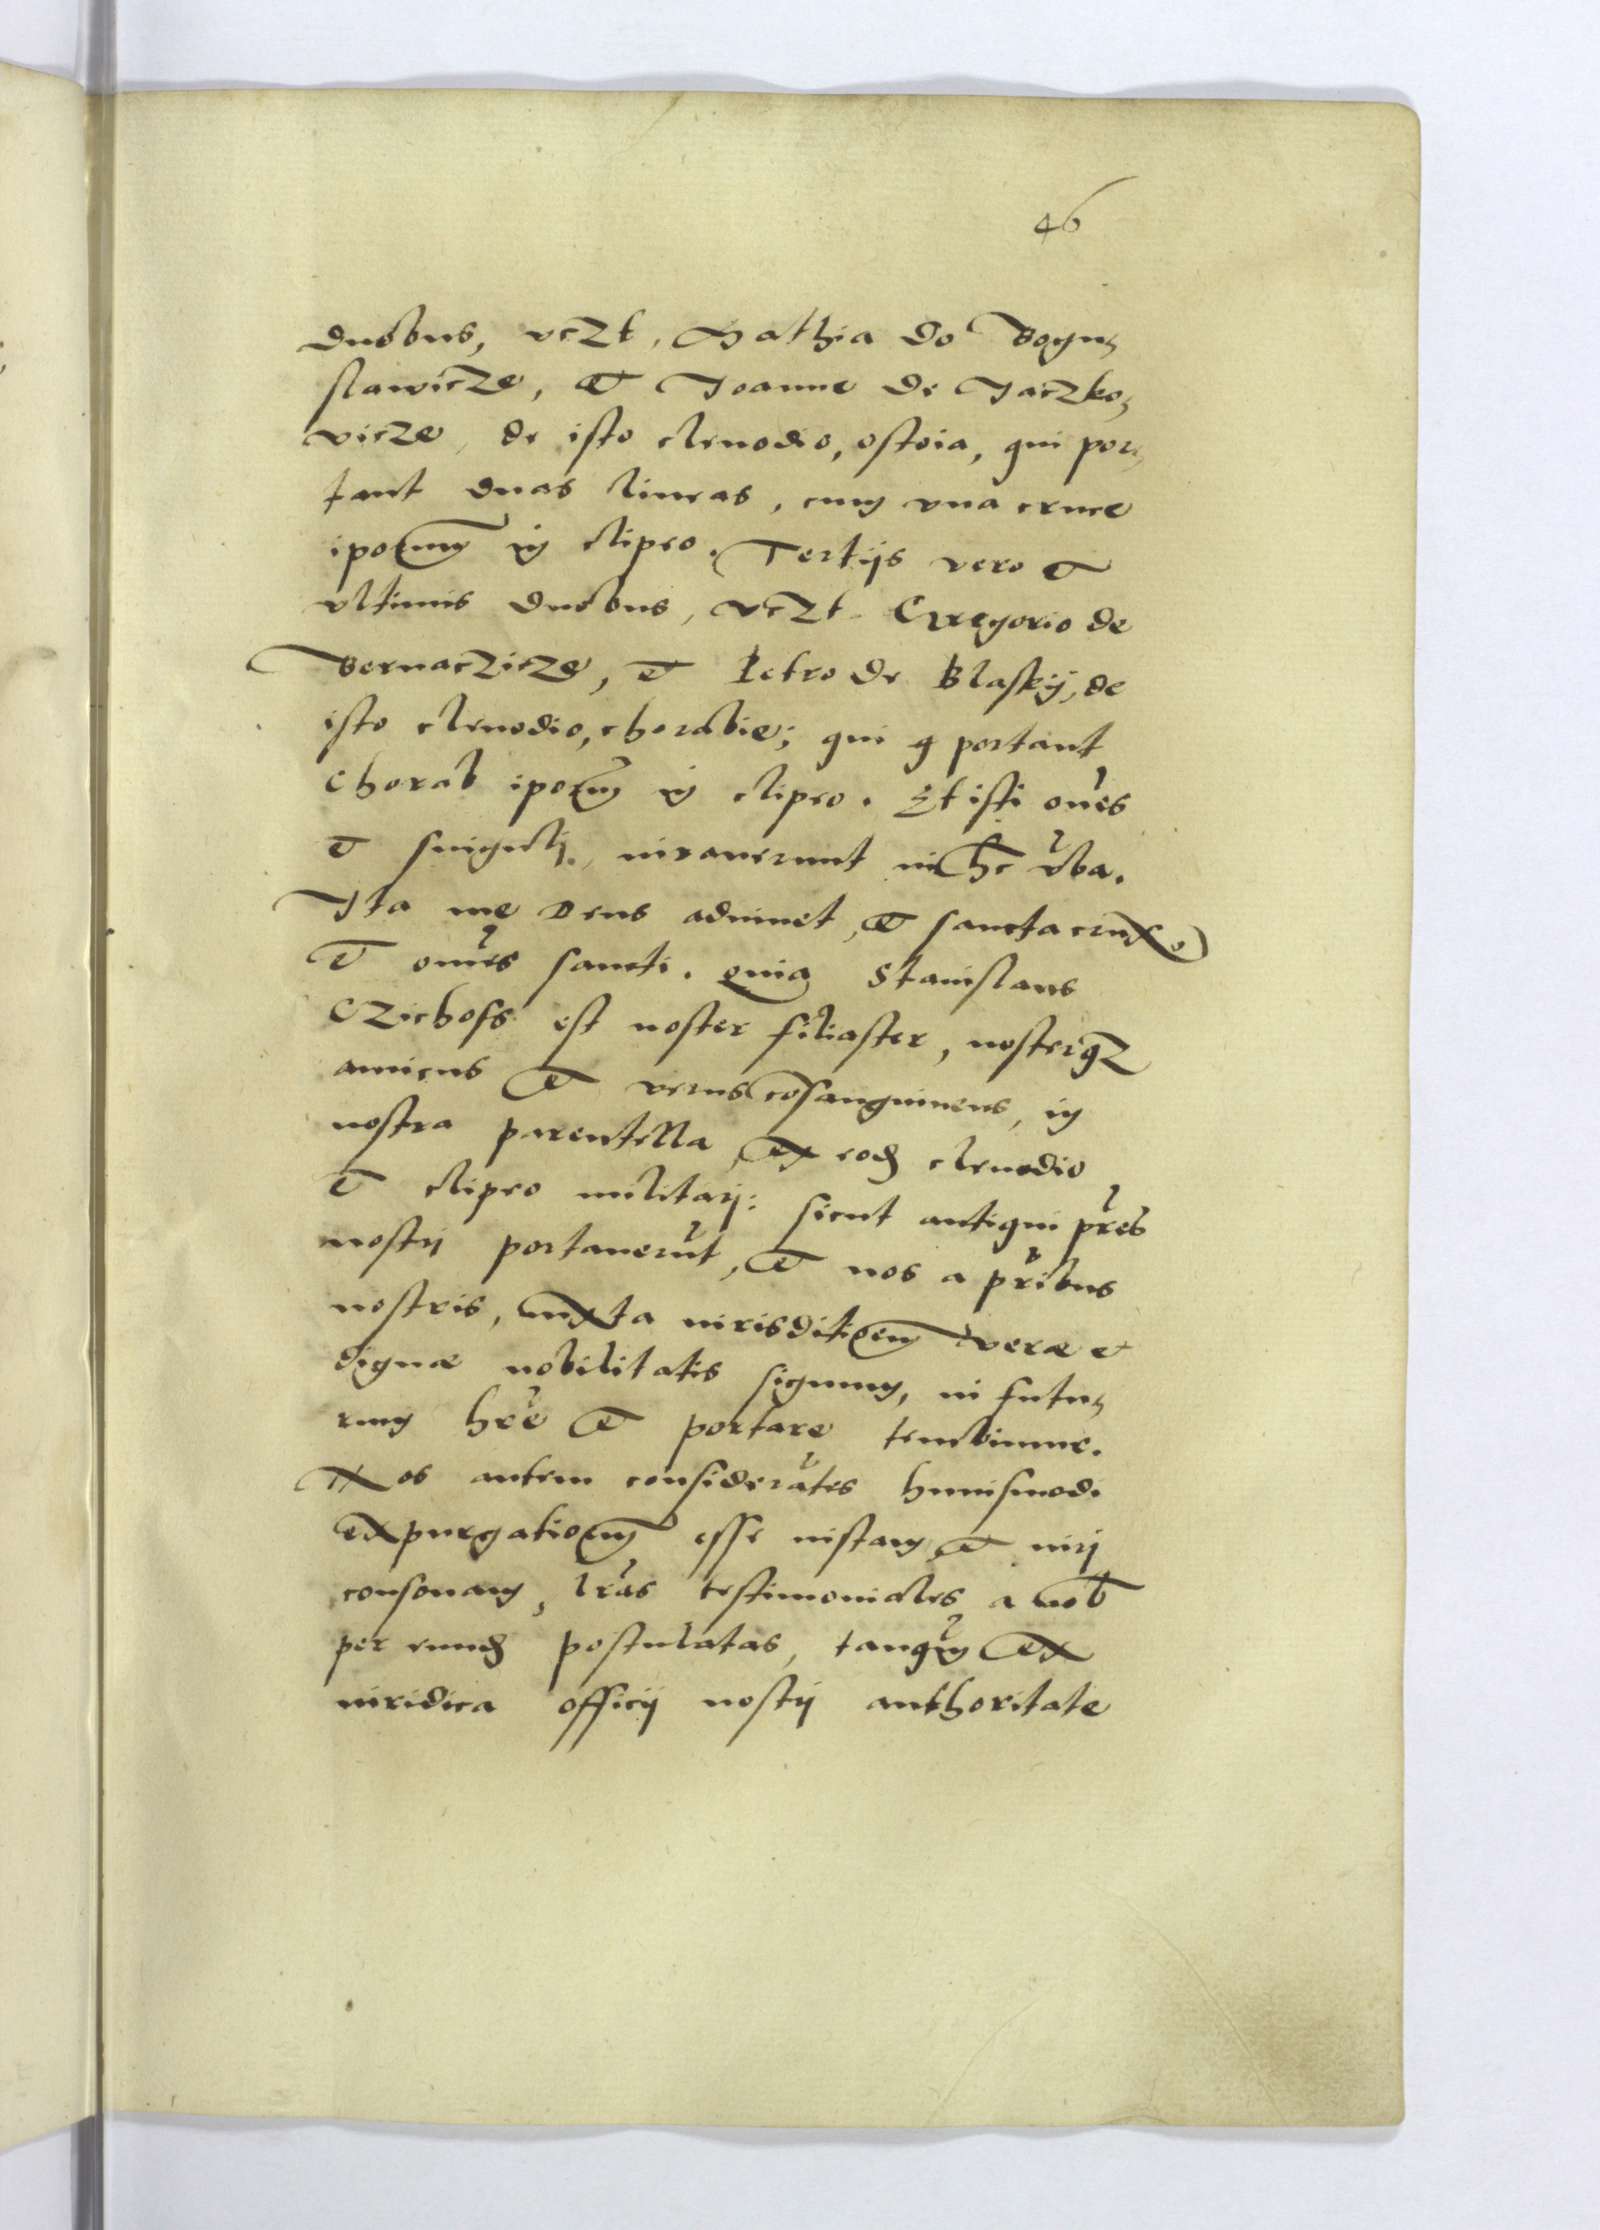 46
duobus, vczt, Mathia de Bogu,
slawicze, et Joanne de Jaczko,
vicze, de isto clenodio, ostoia, qui por,
tant duas lineas, cum vna cruce
ipoȝum in clipeo. Tertijs vero et
vltimis duobus, vczt Gregorio de
Bernaczicze, et Petro de Blaskÿ, de
isto clenodio, chorabie; qui q portant
Chorab ipoȝum in clipeo. Et isti oms
et singulj, iurauerunt in hc vba.
Ita me Deus adiuuet, et sancta crux,
et omes sancti. quia Stanislaus
Czichoss est noster filiaster, nosterqȝ
amicus et verus cosanguineus, in
nostra parentella, ex eod clenodio
et clipeo militarj: sicut antiqui pres
nostrj portauerut, et nos a pribus
nostris, iuxta iurisditioem veræ et
dignæ nobilitatis signum, in futu,
rum hre et portare tenebimur.
Nos autem considerates huiusmodi
expurgatioem esse iustam et iurj
consonam, lras testimoniales a nob
per eund postulatas, tanqm ex
iuridica officij nostrj authoritate